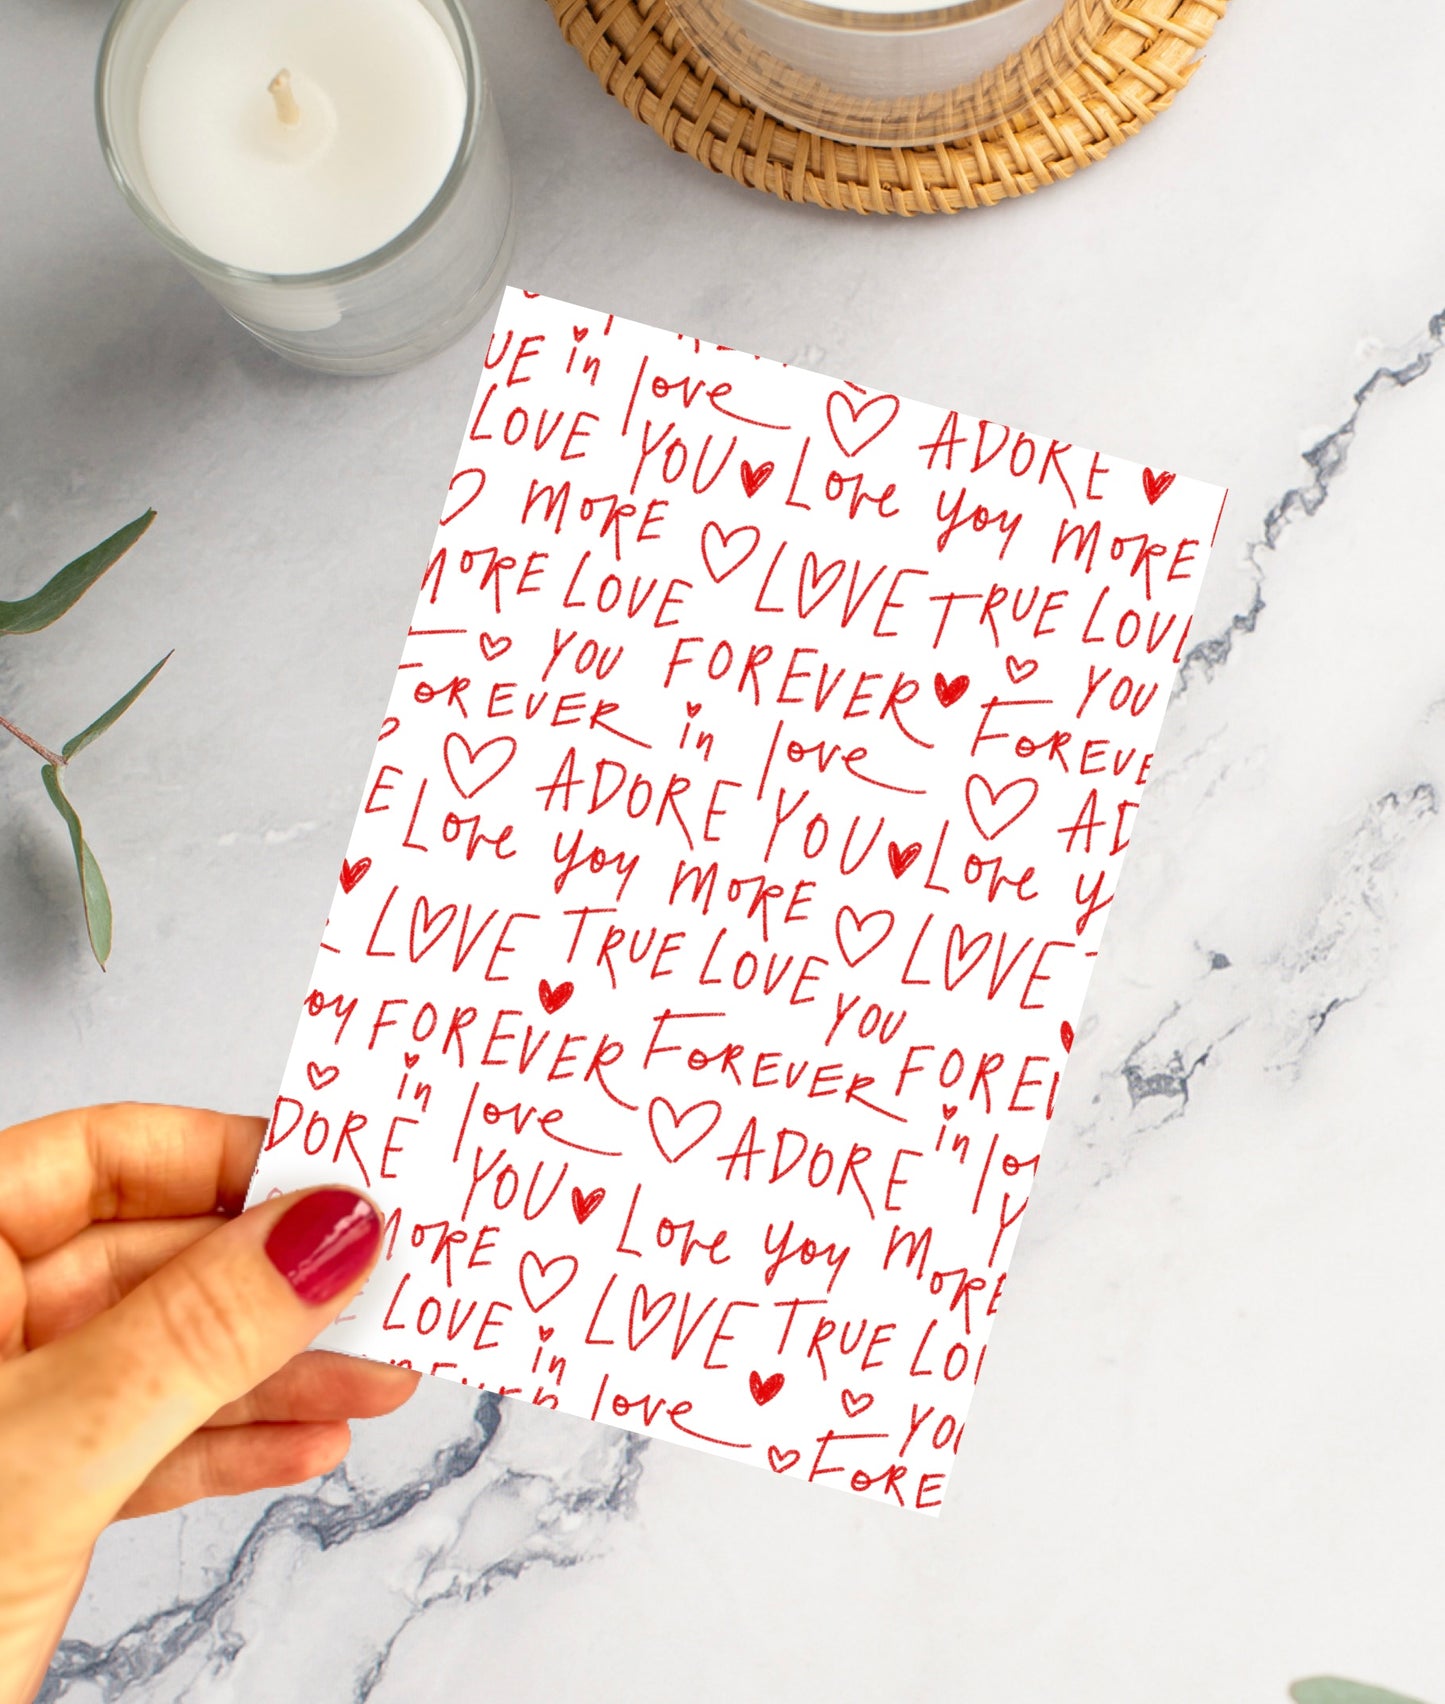 UE in love ADORE
LOVE YOU Love you MORE
MORE LOVE TRUE LOVE
MORE LOVE YOU FOREVER YOU
FOREVER in love FOREVE
ADORE YOU Love AD
E Love you MORE Love y
LOVE TRUE LOVE LOVE
oy FOREVER FOREVER YOU FOREV
in love ADORE in lov
DORE YOU Love you MORE Y
MORE LOVE TRUE LOV
LOVE in love YOU
FORE